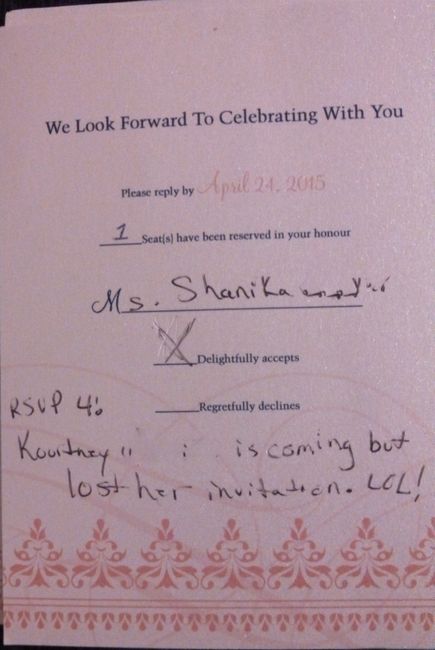 We Look Forward To Celebrating With You
Please reply by April 24, 2015
1 Seat(s) have been reserved in your honour
Ms. Shanika
X Delightfully accepts
Regretfully declines
RSVP 4:
Kourtney is coming but
lost her invitation. LOL!